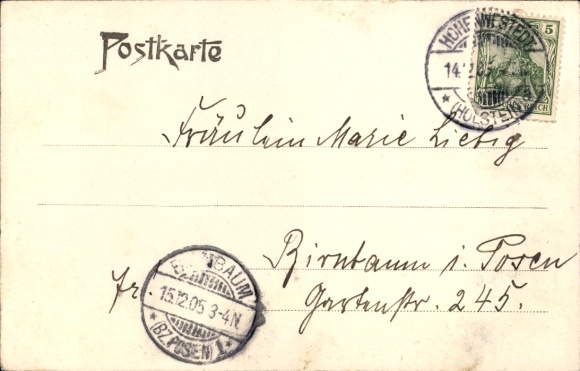 Postkarte
HOHENWESTEDT
14.12.05
* (HOLSTEIN) *
5
REICH
Fräulein Marie Liebig
Birnbaum i. Posen
Gartenstr. 245.
fr.
BIRNBAUM
15.12.05 3-4N
* (BZ. POSEN) 1 *